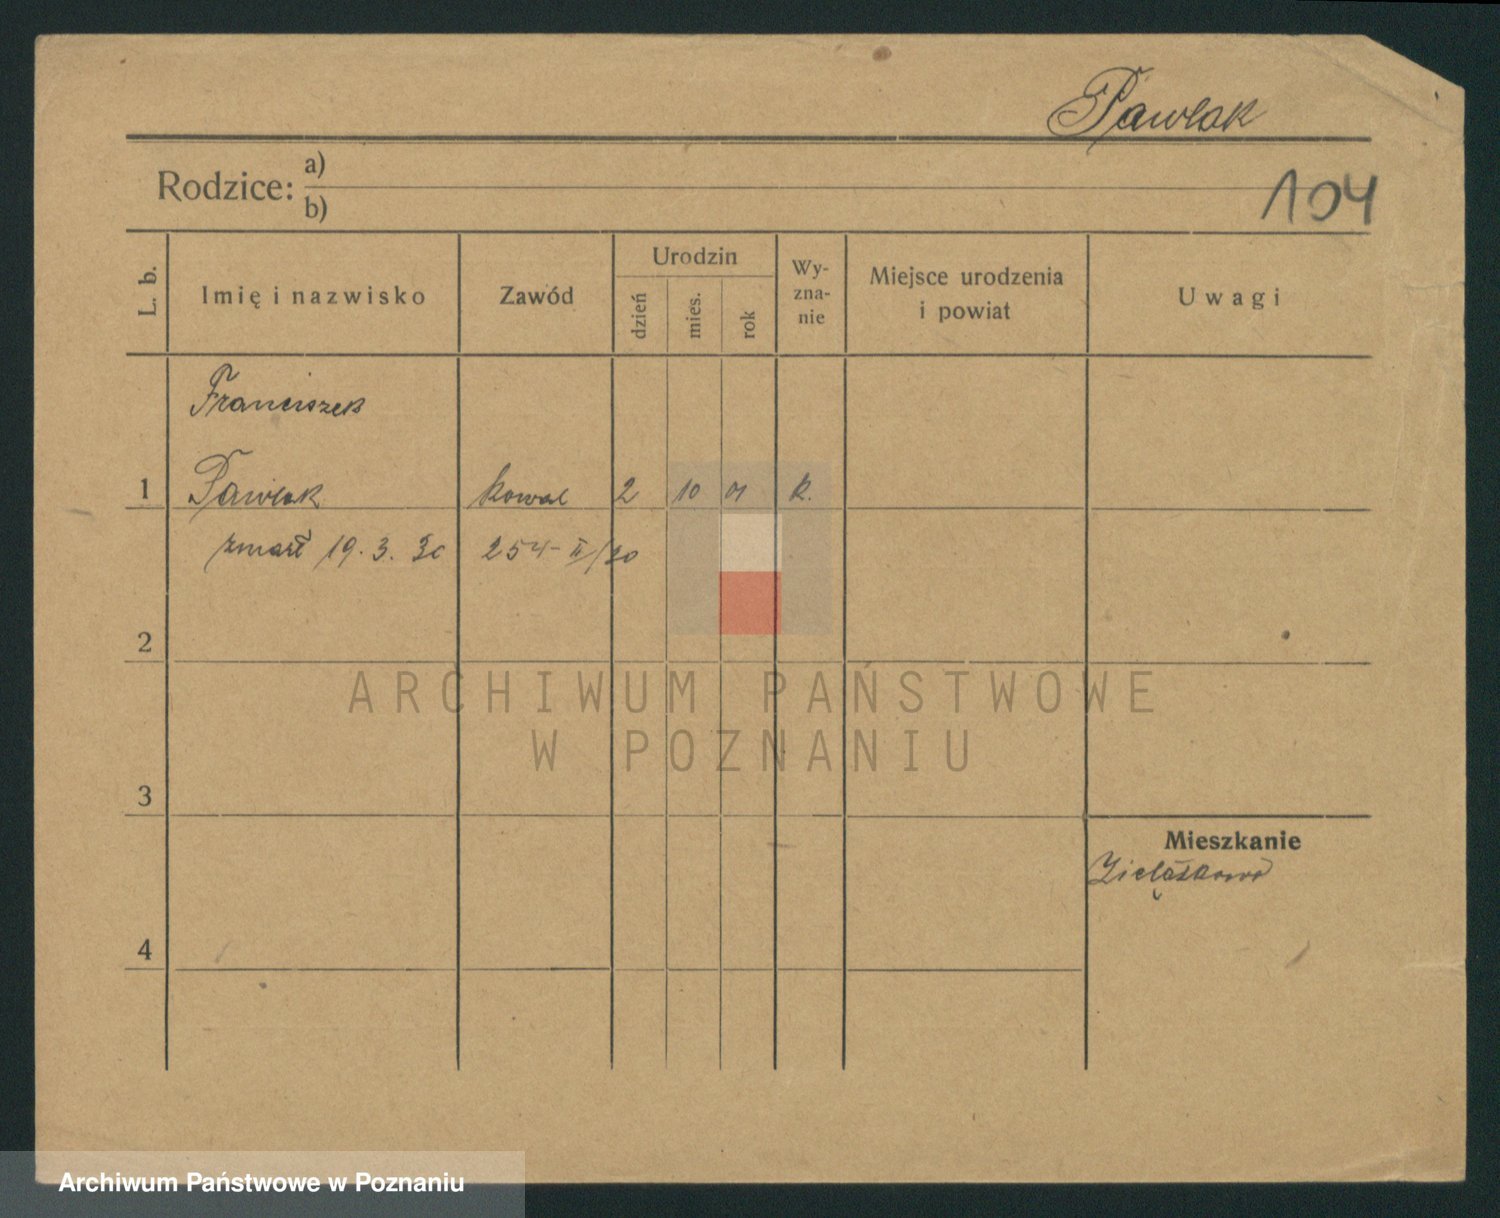 Pawlak
Rodzice: a)
b)
104
L. b.
Imię i nazwisko
Zawód
Urodzin
dzień
mies.
rok
Wy-
zna-
nie
Miejsce urodzenia
i powiat
Uwagi
Franciszek
1 Pawlak kowal 2 10 01 k.
zmarł 19. 3. 30 254-II/30
2
ARCHIWUM PAŃSTWOWE
W POZNANIU
3
Mieszkanie
4
Archiwum Państwowe w Poznaniu